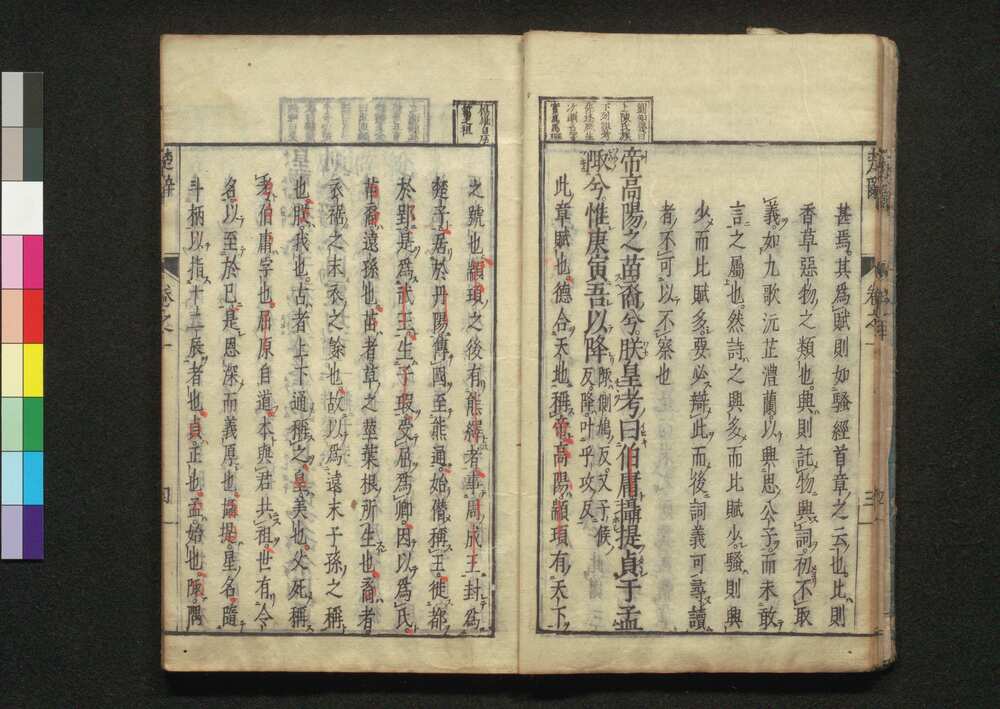 甚焉其爲賦則如騷經首章之云也比則
香草惡物之類也興則託物興詞初不取
義如九歌沅芷澧蘭以興思公子而未敢
言之屬也然詩之興多而比賦少騷則興
少而比賦多要必辯此而後詞義可尋讀
者不可以不察也
帝高陽之苗裔兮朕皇考曰伯庸攝提貞于孟
陬兮惟庚寅吾以降陬側鳩反又子侯
反降叶乎攻反
此章賦也德合天地稱帝高陽顓頊有天下
之號也顓頊之後有熊繹者事周成王封爲
楚子居於丹陽傳國至熊通始僭稱王徙都
於郢是爲武王生子瑕受屈爲卿因以爲氏
苗裔遠孫也苗者草之莖葉根所生也裔者
衣裾之末衣之餘也故以爲遠末子孫之稱
也朕我也古者上下通稱之皇美也父死稱
考伯庸字也屈原自道本與君共祖世有令
名以至於已是恩深而義厚也攝提星名隨
斗柄以指十二辰者也貞正也孟始也陬隅
楚辭
卷之一
四
三